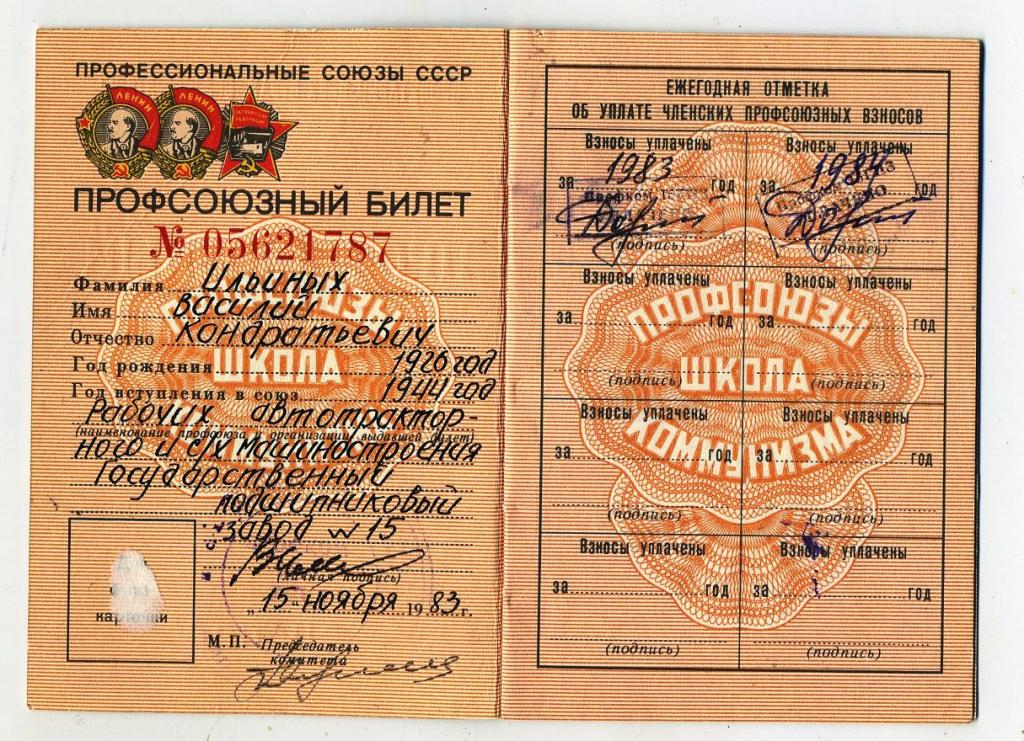 ПРОФЕССИОНАЛЬНЫЕ СОЮЗЫ СССР
ЛЕНИН ЛЕНИН ОКТЯБРЬСКАЯ РЕВОЛЮЦИЯ
ПРОФСОЮЗНЫЙ БИЛЕТ
№ 05621787
Фамилия Ильиных
Имя Василий
Отчество Кондратьевич
Год рождения 1926 год
Год вступления в союз 1944 год
Рабочих автотрактор-
(наименование профсоюза и организации выдавшей билет)
ного и с/х машиностроения
Государственный
подшипниковый
завод N 15
(личная подпись)
"15" ноября 1983 г.
карточки
М.П. Председатель
комитета
ШКОЛА
ЕЖЕГОДНАЯ ОТМЕТКА
ОБ УПЛАТЕ ЧЛЕНСКИХ ПРОФСОЮЗНЫХ ВЗНОСОВ
Взносы уплачены
за 1983 год
(подпись)
Взносы уплачены
за 1984 год
(подпись)
Взносы уплачены
за год
(подпись)
Взносы уплачены
за год
(подпись)
Взносы уплачены
за год
(подпись)
Взносы уплачены
за год
(подпись)
Взносы уплачены
за год
(подпись)
Взносы уплачены
за год
(подпись)
ПРОФСОЮЗЫ
ШКОЛА
КОММУНИЗМА